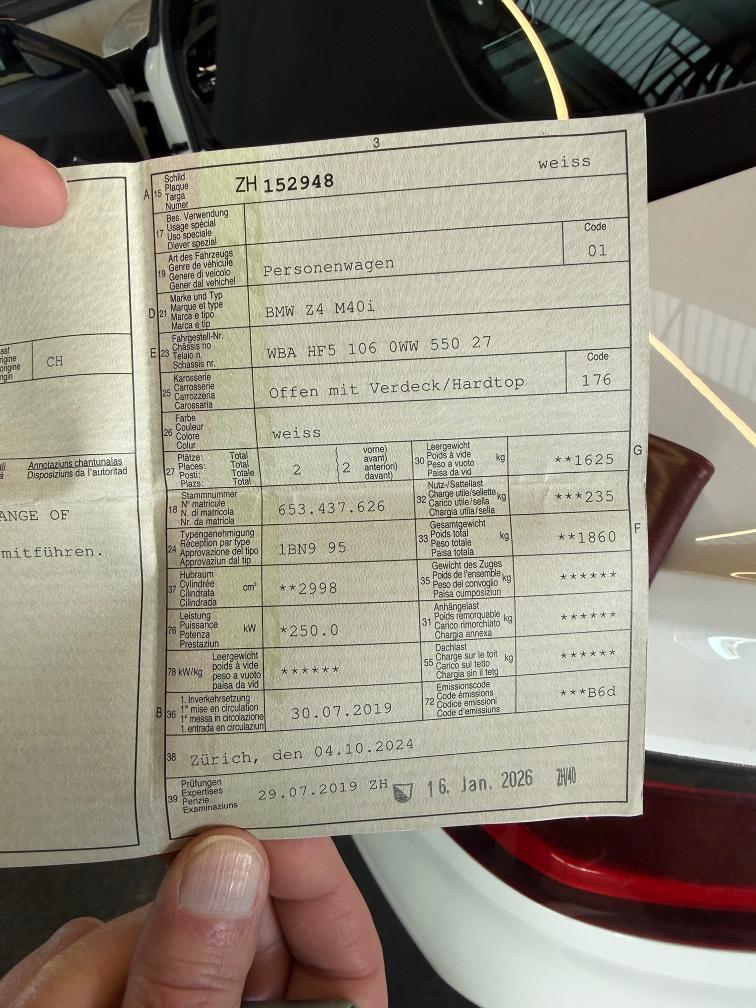 3
A 15 Schild Plaque Targa Numer ZH 152948 weiss
17 Bes. Verwendung Usage spécial Uso speciale Diever spezial
19 Art des Fahrzeugs Genre de véhicule Genere di veicolo Gener dal vehichel Personenwagen Code 01
D 21 Marke und Typ Marque et type Marca e tipo Marca e tip BMW Z4 M40i
E 23 Fahrgestell-Nr. Châssis no Telaio n. Schassis nr. WBA HF5 106 0WW 550 27
25 Karosserie Carrosserie Carrozzeria Carossaria Offen mit Verdeck/Hardtop Code 176
26 Farbe Couleur Colore Colur weiss
27 Plätze: Total Places: Total Posti: Totale Plazs: Total 2 2 vorne) avant) anterion) davant)
30 Leergewicht Poids à vide Peso a vuoto Paisa da vid kg **1625 G
18 Stammnummer N° matricule N. di matricola Nr. da matricla 653.437.626
32 Nutz-/Sattellast Charge utile/sellette Carico utile/sella Chargia utila/sella kg ***235
24 Typengenehmigung Réception par type Approvazione del tipo Approvaziun dal tip 1BN9 95
33 Gesamtgewicht Poids total Peso totale Paisa totala kg **1860 F
37 Hubraum Cylindrée Cilindrata Cilindrada cm³ **2998
35 Gewicht des Zuges Poids de l'ensemble Peso del convoglio Paisa cumposiziun kg ******
76 Leistung Puissance Potenza Prestaziun kW *250.0
31 Anhängelast Poids remorquable Carico rimorchiato Chargia annexa kg ******
78 kW/kg Leergewicht poids à vide peso a vuoto paisa da vid ******
55 Dachlast Charge sur le toit Carico sul tetto Chargia sin il tetg kg ******
B 36 1. Inverkehrsetzung 1re mise en circulation 1a messa in circolazione 1. entrada en circulaziun 30.07.2019
72 Emissionscode Code émissions Codice emissioni Code d'emissiuns ***B6d
38 Zürich, den 04.10.2024
39 Prüfungen Expertises Perizie Examinaziuns 29.07.2019 ZH 16. Jan. 2026 ZH/40
CH
Annotaziuns chantunalas
Disposiziuns da l'autoritad
ANGE OF
mitführen.